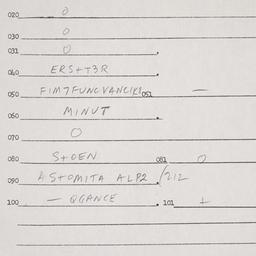 020 0
030 0
031 0
040 ERS+T3R
050 FIM7FUNCVANCIKI 051 —
060 MINUT
070 0
080 S+OEN 081 0
090 ASTOMITA ALP2 /212
100 — QGANCE 101 +